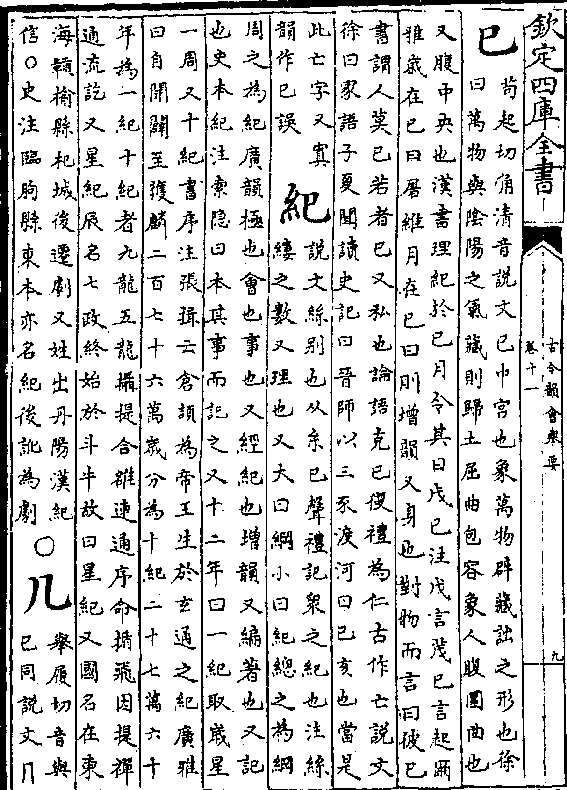 欽定四庫全書
古今韻會舉要
卷十一
九
已
苟起切角清音說文已中宮也象萬物辟藏詘之形也徐
曰萬物與陰陽之氣藏則歸土屈曲包容象人腹圍曲也
又腹中央也漢書理紀於已月令其日戊已注戊言茂已言起爾
雅歲在已曰屠維月在已曰則增韻又身也對物而言曰彼已
書謂人莫已若者已又私也論語克已復禮為仁古作亡說文
徐曰家語子夏聞讀史記曰晉師以三豕渡河曰已亥也當是
此亡字又寘
韻作已誤
紀
說文絲別也从糸已聲禮記衆之紀也注絲
縷之數又理也又大曰綱小曰紀總之為綱
周之為紀廣韻極也會也事也又經紀也增韻又編著也又記
也史本紀注索隱曰本其事而記之又十二年曰一紀取歲星
一周又十紀書序注張揖云倉頡為帝王生於玄通之紀廣雅
曰自開闢至獲麟二百七十六萬歲分為十紀二十七萬六千
年為一紀十紀者九龍五龍攝提合雒連通序命循飛因提禪
通流訖又星紀辰名七政終始於斗牛故曰星紀又國名在東
海贛榆縣杞城後遷劇又姓出丹陽漢紀
信○史注臨朐縣東本亦名紀後訛為劇
○几
舉履切音與
已同說文几